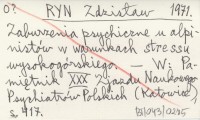 0? RYN Zdzisław 1971.
Zaburzenia psychiczne u alpi-
nistów w warunkach stressu
wysokogórskiego. — W: Pa-
miętnik XXX Zjazdu Naukowego
Psychiatrów Polskich (Katowice)
s. 417. B/043/0275